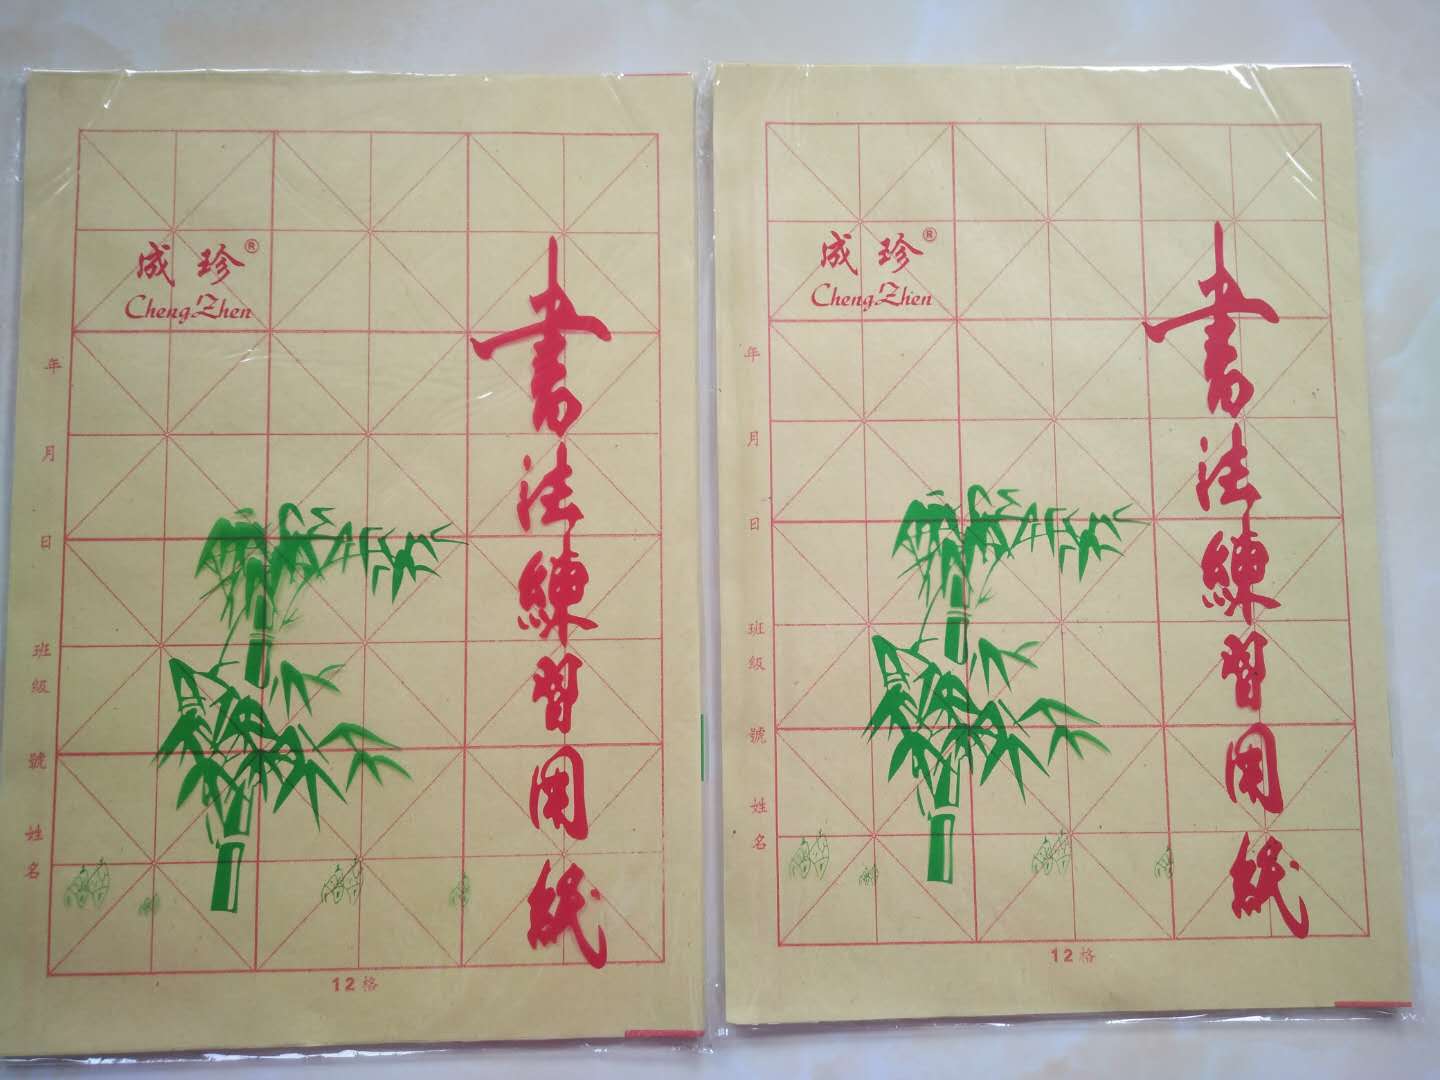 成珍®
ChengZhen
書法練習用紙
年月日班級號姓名
12格
成珍®
ChengZhen
書法練習用紙
年月日班級號姓名
12格